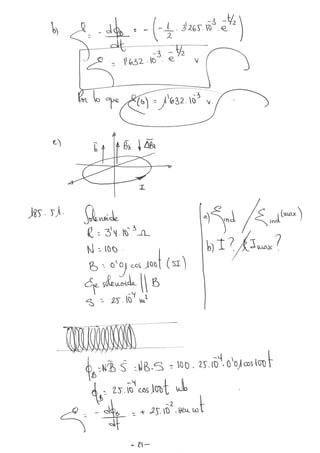 b) ℰ = - dϕB/dt = - (- 1/2 · 3'265·10⁻³ · e^(-t/2))
ℰ = 1'632·10⁻³ · e^(-t/2) v
Por lo que ℰ(0) = 1'632·10⁻³ v.
c)
B ↑ ↑ B₂ ↓ ΔB₂
I
185.51. Solenoide
R = 3'4·10⁻³ Ω
N = 100
B = 0'01 cos 100t (SI)
Eje solenoide || B
S = 25·10⁻⁴ m²
a) ℰind / ℰind (max)
b) I? / Imax?
ϕB = N B · S = N B · S = 100 · 25·10⁻⁴ · 0'01 cos 100t
ϕB = 25·10⁻⁴ cos 100t wb
ℰ = - dϕB/dt = + 25·10⁻² · sen ωt
- 21 -